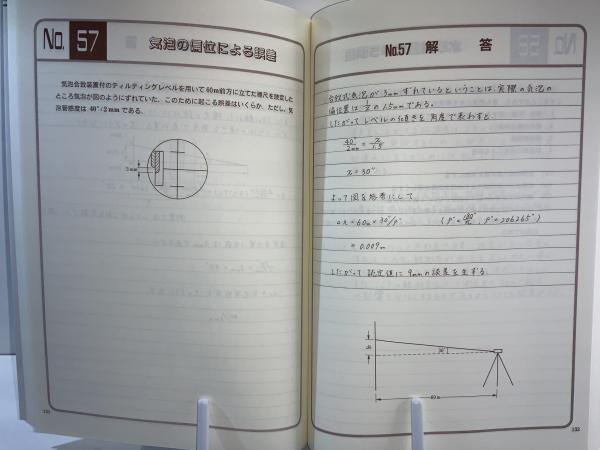 No. 57
気泡の偏位による誤差
気泡合致装置付のティルティングレベルを用いて60m前方に立てた標尺を測定した
ところ気泡が図のようにずれていた。このために起こる誤差はいくらか、ただし、気
泡管感度は40″/2mmである。
3mm
132
No.57 解 答
合致式気泡が3mmずれているということは、実際の気泡の
偏位量は½の1.5mmである。
したがってレベルの傾きを角度で表わすと
40″/2mm = x/1.5
x = 30″
よって図を参考にして
= 60m × 30″/ρ″ (ρ° = 180°/π , ρ″ = 206265″)
= 0.009m
したがって 測定値に 9mmの誤差を生ずる.
30″
60 m
133